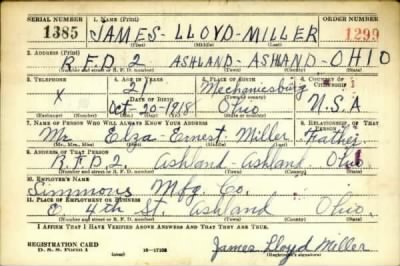 SERIAL NUMBER 1. NAME (Print) ORDER NUMBER
1385 JAMES - LLOYD - MILLER 1299
(First) (Middle) (Last)
2. ADDRESS (Print)
R.F.D. 2 ASHLAND - ASHLAND - OHIO
(Number and street or R. F. D. number) (Town) (County) (State)
3. TELEPHONE 4. AGE IN YEARS 5. PLACE OF BIRTH 6. COUNTRY OF CITIZENSHIP
X 21 Mechanicsburg
DATE OF BIRTH
Oct-20-1918 Ohio U.S.A
7. NAME OF PERSON WHO WILL ALWAYS KNOW YOUR ADDRESS 8. RELATIONSHIP OF THAT PERSON
Mr. Elza - Ernest Miller Father
(Mr., Mrs., Miss) (First) (Middle) (Last)
9. ADDRESS OF THAT PERSON
R.F.D. 2 Ashland - Ashland, Ohio
(Number and street or R. F. D. number) (Town) (County) (State)
10. EMPLOYER'S NAME
Simmons Mfg. Co.
11. PLACE OF EMPLOYMENT OR BUSINESS
E 4th St. Ashland Ohio.
(Number and street or R. F. D. number) (Town) (County) (State)
I AFFIRM THAT I HAVE VERIFIED ABOVE ANSWERS AND THAT THEY ARE TRUE.
REGISTRATION CARD
D. S. S. Form 1 (over) James Lloyd Miller
(Registrant's signature)